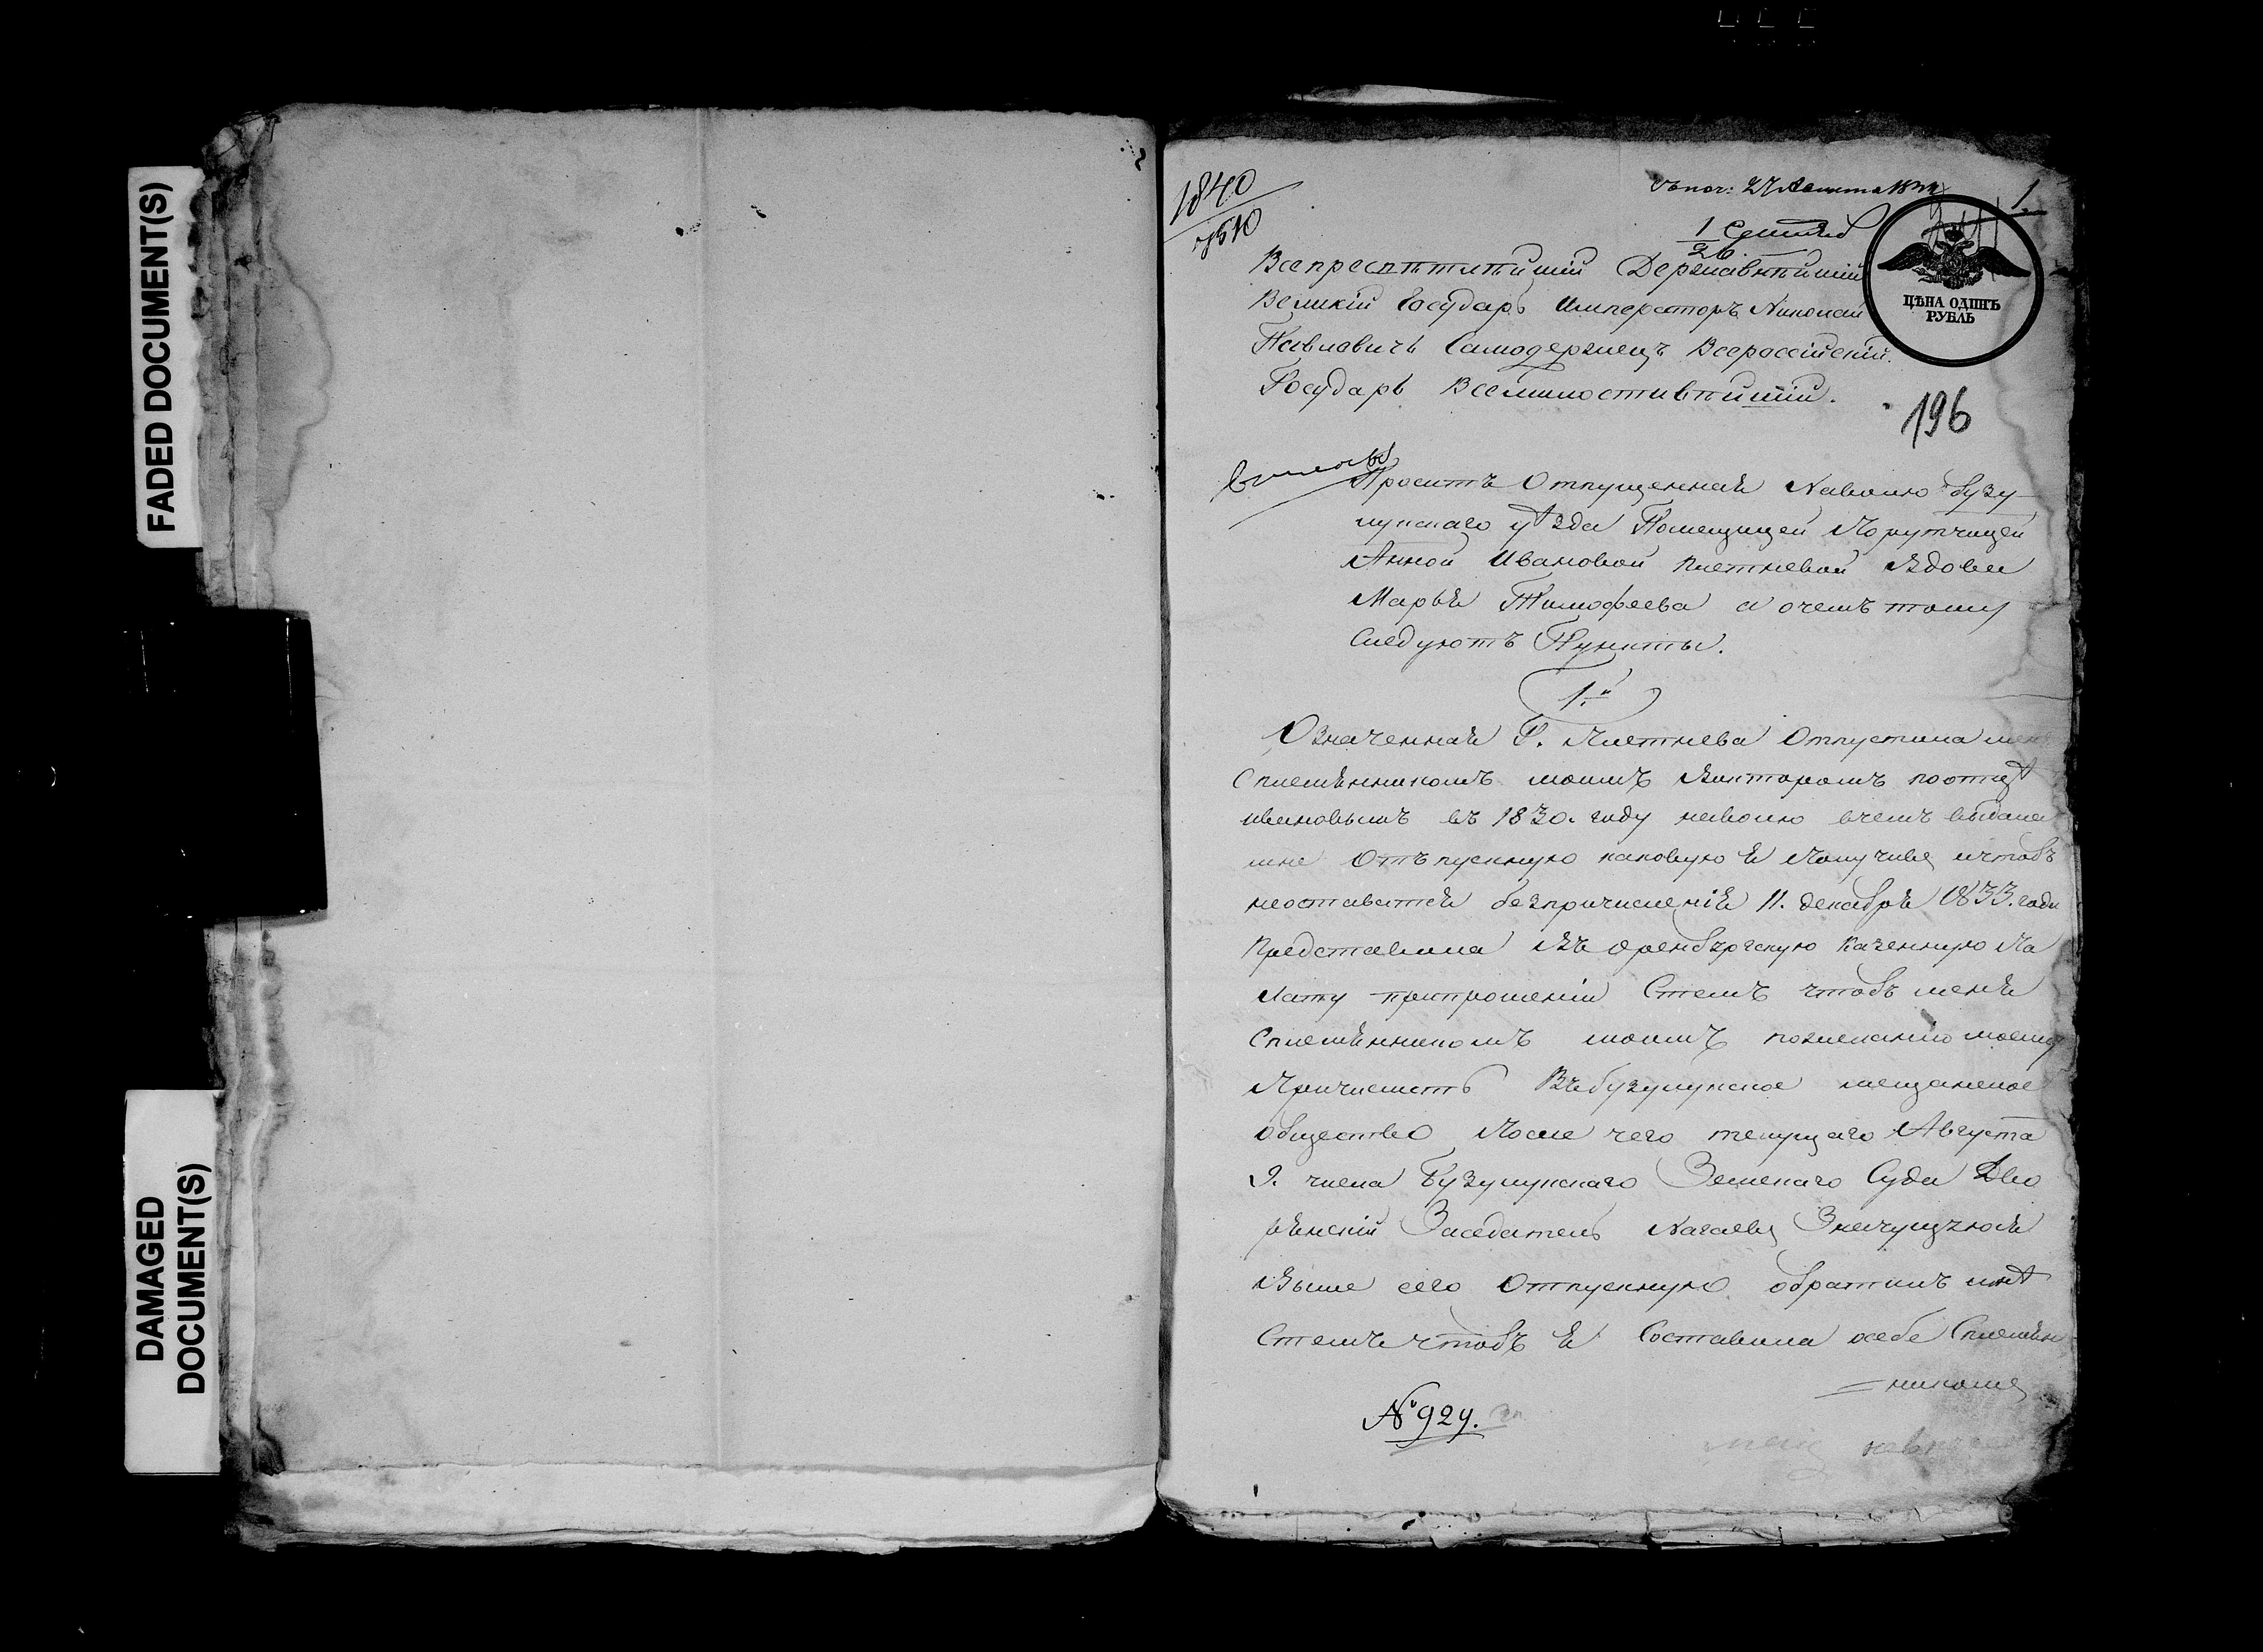 FADED DOCUMENT(S)
DAMAGED
DOCUMENT(S)
1840
7510
1.
1 Сентяб
26
ЦѢНА ОДИНЪ
РУБЛЬ
Всепресвѣтлѣйшій Державнѣйшій
Великій Государь Императоръ Николай
Павловичь Самодержецъ Всероссійскій.
Государь Всемилостивѣйшій.
196
Проситъ Отпущенная Наволю бузу
лукскаго уѣзда Помещицей Порутчицей
Анной Ивановой Плетневой Вдова
Марья Тимофеева а очемъ тому
Следуютъ Пункты.
1.й
Означенная Г. Плетнева Отпустила меня
Сплемянникомъ моимъ Викторомъ поотцѣ
ивановымъ въ 1830. году наволю вчемъ выдана
мне Отъпускную каковую я Получива итобъ
неоставатся безпричисленія 11. декабря 1833. года
Представила Въ оренбургскую Казенную Па
лату припрошеніи Стемъ чтобъ меня
Сплемянникомъ моимъ пожеланию моему
Причислить Въбузулукское мещанское
общество После чего текущаго Августа
9. числа Бузулукскаго Земскаго Суда Дво
рянский Заседатель Значущуюся
Выше сего Отпускную обратилъ мнѣ
Стемъ чтобъ я Составила осебе Сплемян
никоме
№ 929.